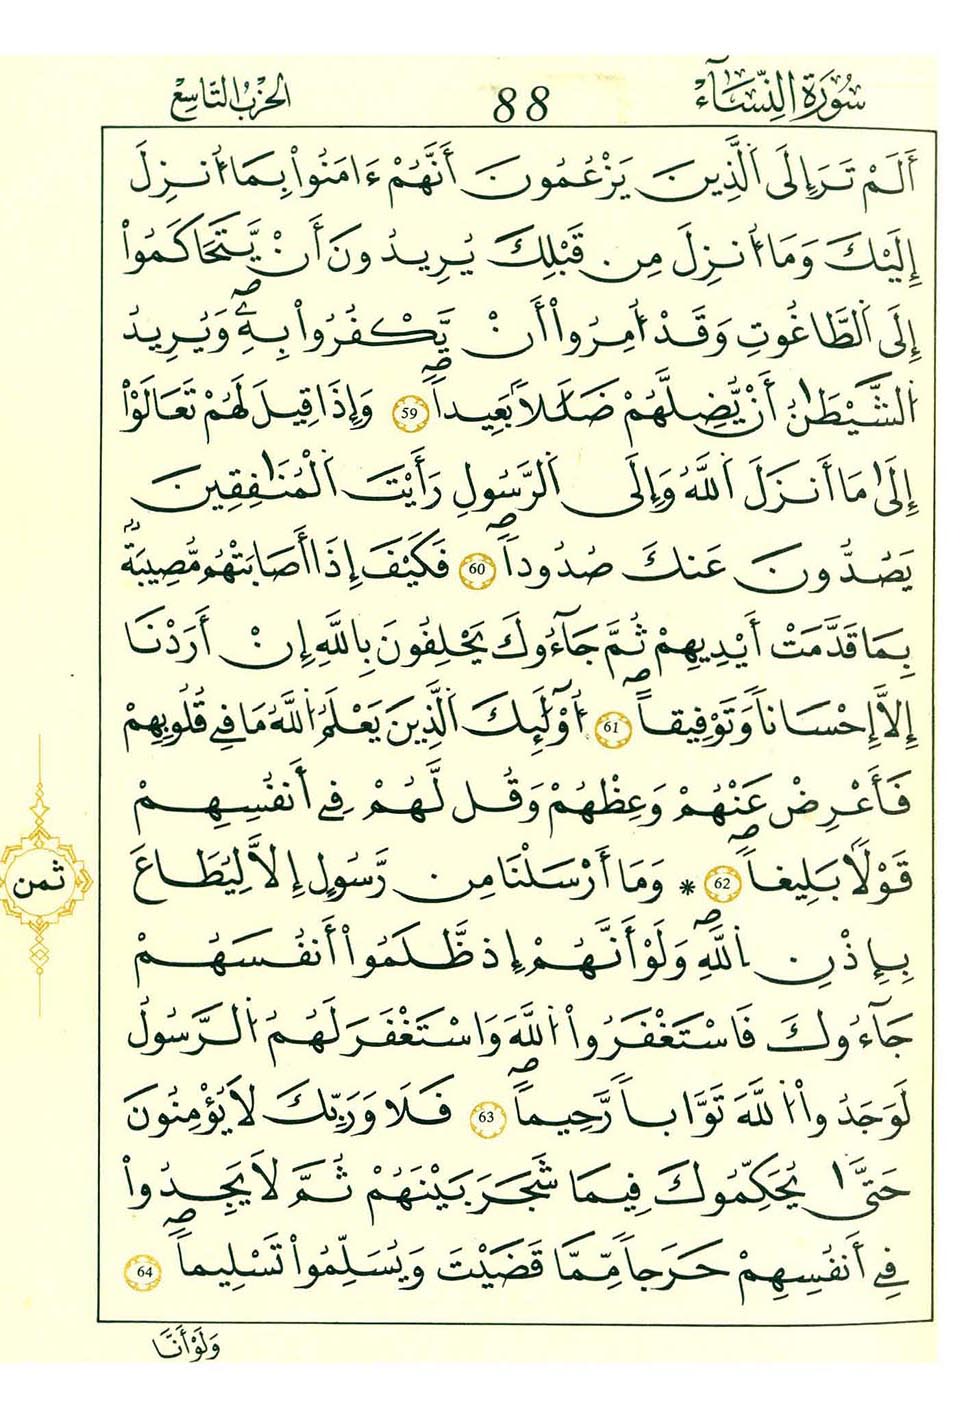 سُورَةُ النِّسَآءِ 88 الحِزْبُ التَّاسِعُ
أَلَمْ تَرَ إِلَى الَّذِينَ يَزْعُمُونَ أَنَّهُمْ ءَامَنُواْ بِمَا أُنزِلَ
إِلَيْكَ وَمَا أُنزِلَ مِن قَبْلِكَ يُرِيدُونَ أَنْ يَّتَحَاكَمُواْ
إِلَى الطَّاغُوتِ وَقَدْ أُمِرُواْ أَنْ يَّكْفُرُواْ بِهِۦ وَيُرِيدُ
الشَّيْطَٰنُ أَنْ يُّضِلَّهُمْ ضَلَٰلاً بَعِيداً 59 وَإِذَا قِيلَ لَهُمْ تَعَالَوْاْ
إِلَىٰ مَا أَنزَلَ اللَّهُ وَإِلَى الرَّسُولِ رَأَيْتَ الْمُنَٰفِقِينَ
يَصُدُّونَ عَنكَ صُدُوداً 60 فَكَيْفَ إِذَا أَصَابَتْهُم مُّصِيبَةٌ
بِمَا قَدَّمَتْ أَيْدِيهِمْ ثُمَّ جَآءُوكَ يَحْلِفُونَ بِاللَّهِ إِنْ أَرَدْنَا
إِلاَّ إِحْسَاناً وَتَوْفِيقاً 61 أُوْلَٰٓئِكَ الَّذِينَ يَعْلَمُ اللَّهُ مَا فِي قُلُوبِهِمْ
فَأَعْرِضْ عَنْهُمْ وَعِظْهُمْ وَقُل لَّهُمْ فِي أَنفُسِهِمْ
قَوْلاً بَلِيغاً 62 * وَمَا أَرْسَلْنَا مِن رَّسُولٍ إِلاَّ لِيُطَاعَ
ثمن
بِإِذْنِ اللَّهِ وَلَوْ أَنَّهُمْ إِذ ظَّلَمُواْ أَنفُسَهُمْ
جَآءُوكَ فَاسْتَغْفَرُواْ اللَّهَ وَاسْتَغْفَرَ لَهُمُ الرَّسُولُ
لَوَجَدُواْ اللَّهَ تَوَّاباً رَّحِيماً 63 فَلَا وَرَبِّكَ لاَ يُؤْمِنُونَ
حَتَّىٰ يُحَكِّمُوكَ فِيمَا شَجَرَ بَيْنَهُمْ ثُمَّ لاَ يَجِدُواْ
فِي أَنفُسِهِمْ حَرَجاً مِّمَّا قَضَيْتَ وَيُسَلِّمُواْ تَسْلِيماً 64
وَلَوْ أَنَّا